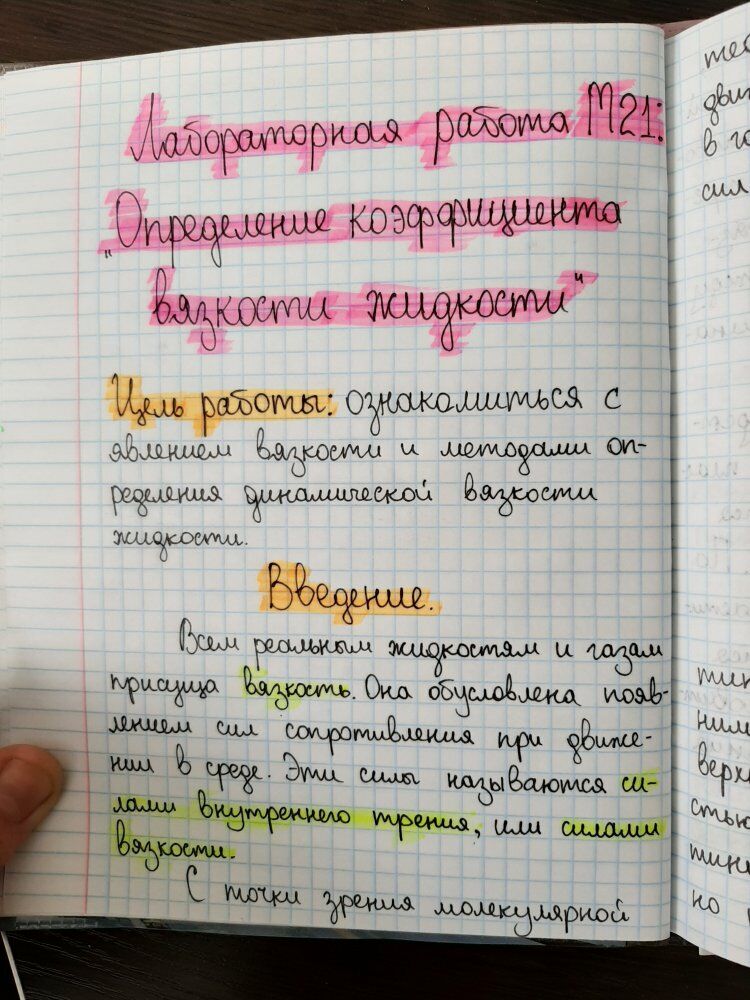 Лабораторная работа М21:
„Определение коэффициента
вязкости жидкости"
Цель работы: ознакомиться с
явлением вязкости и методами оп-
ределения динамической вязкости
жидкости.
Введение.
Всем реальным жидкостям и газам
присуща вязкость. Она обусловлена появ-
лением сил сопротивления при движе-
нии в среде. Эти силы называются си-
лами внутреннего трения, или силами
вязкости.
С точки зрения молекулярной